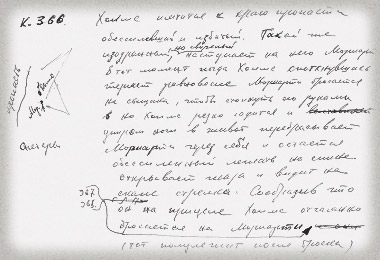 К. 366. Холмс пятится к краю пропасти
обессилевший и избитый. Такой же
изодранный, но свирепый, наступает на него Мориарти
В тот момент когда Холмс споткнувшись
теряет равновесие Мориарти бросается
на сыщика, чтобы столкнуть его руками
но Холмс резко садится и
ударом ноги в живот перебрасывает
Мориарти через себя и остается
обессиленный лежать на спине
открывает глаза и видит на
367. скале стрелка. Сообразив что
368. он на прицеле Холмс отчаянно
бросается на Мориарти
(тот получает после броска)